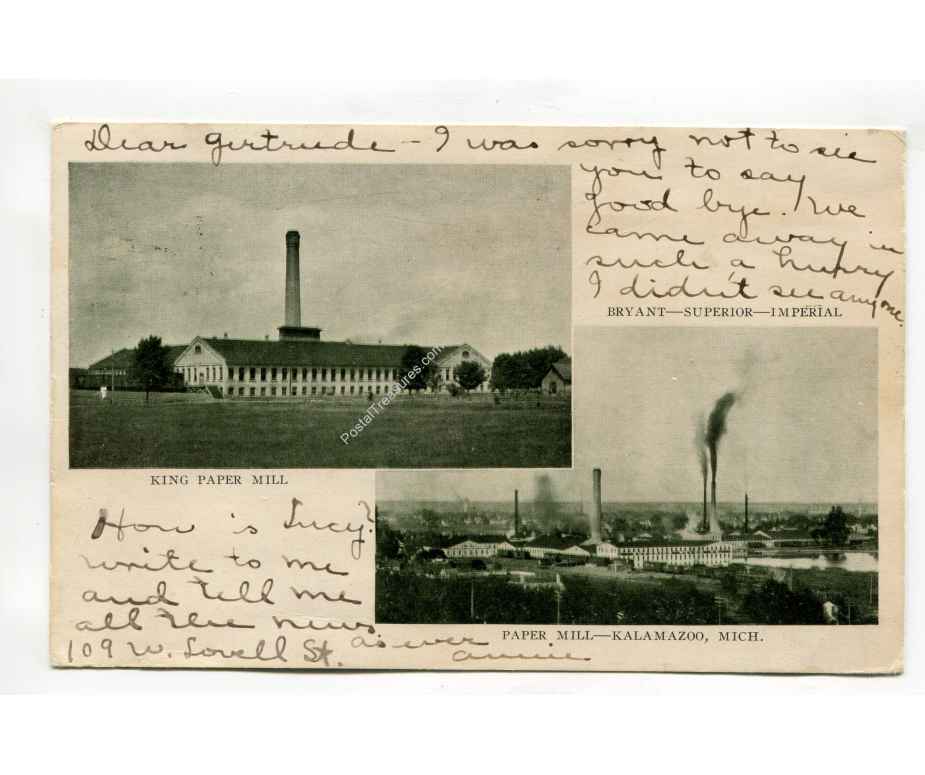 Dear Gertrude - I was sorry not to see
you to say
good bye. We
came away in
such a hurry
I didn't see anyone.
BRYANT—SUPERIOR—IMPERIAL
PostalTreasures.com
KING PAPER MILL
How is Lucy?
write to me
and tell me
all the news.
as ever
annie
109 W. Lovell St.
PAPER MILL—KALAMAZOO, MICH.